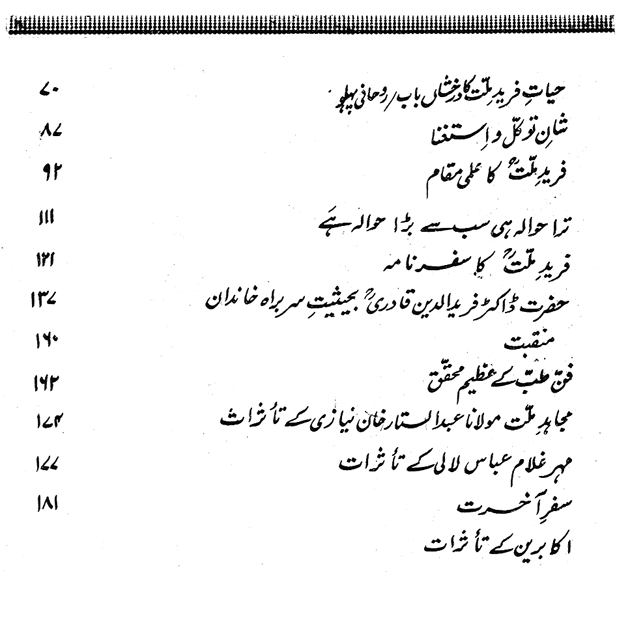 حیاتِ فریدِ ملّت کا درخشاں باب/روحانی پہلو ۷۰
شانِ توکّل و اِستغنا ۸۷
فریدِ ملّتؒ کا علمی مقام ۹۲
ترا حوالہ ہی سب سے بڑا حوالہ ہَے ۱۱۱
فریدِ ملّتؒ کا سفرنامہ ۱۲۱
حضرت ڈاکٹر فریدالدین قادریؒ بحیثیتِ سربراہ خاندان ۱۳۷
منقبت ۱۶۰
فنِّ طب کے عظیم محقّق ۱۶۲
مجاہدِ ملّت مولانا عبدالستار خان نیازی کے تأثرات ۱۷۴
مہر غلام عباس لالی کے تأثرات ۱۷۷
سفرِ آخرت ۱۸۱
اکابرین کے تأثرات